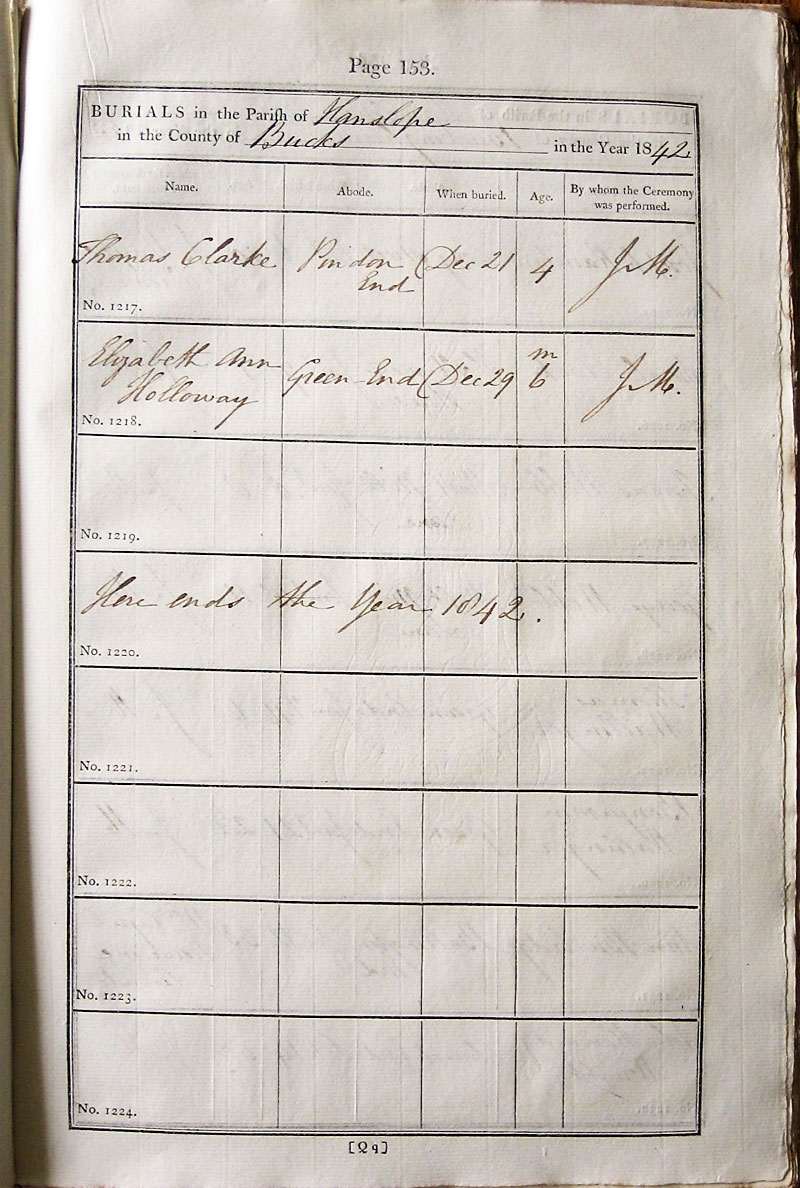 Page 153.
BURIALS in the Pariſh of Hanslope
in the County of Bucks in the Year 1842
Name. Abode. When buried. Age. By whom the Ceremony was performed.
Thomas Clarke Pindon End Dec 21 4 J M.
No. 1217.
Elizabeth Ann Holloway Green End Dec 29 m 6 J M.
No. 1218.
No. 1219.
Here ends the Year 1842.
No. 1220.
No. 1221.
No. 1222.
No. 1223.
No. 1224.
[Qq]